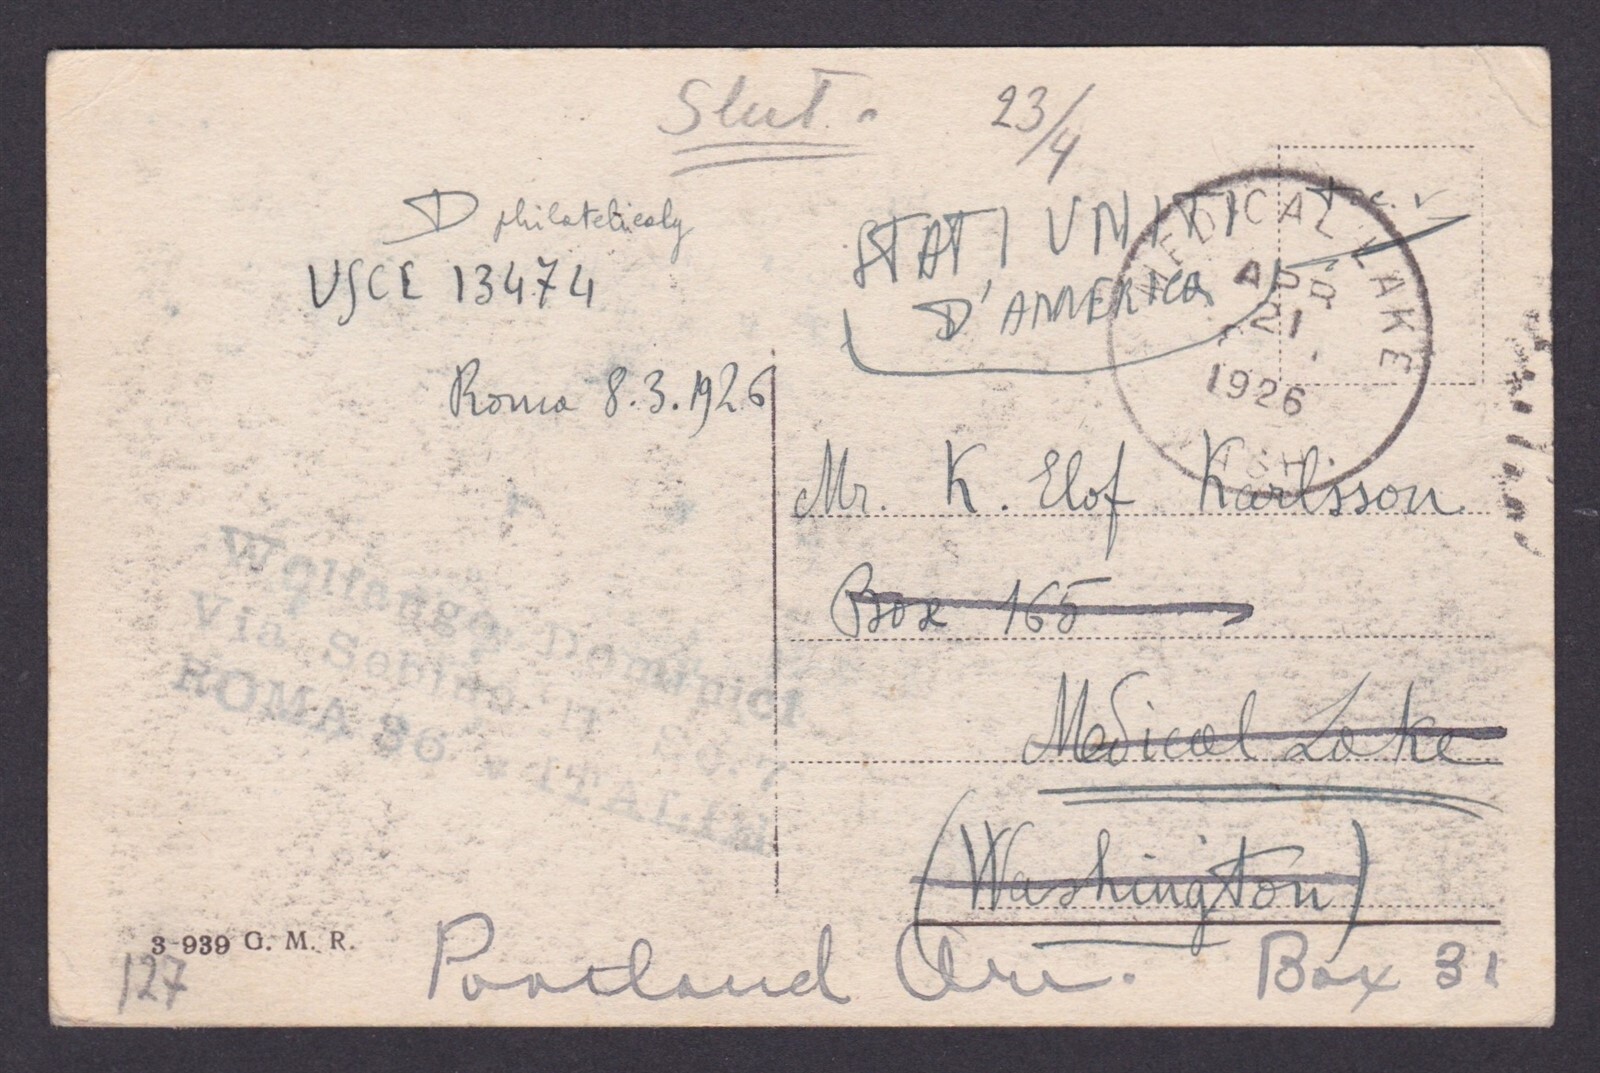 Slut.
23/4
D philatelicaly
USCE 13474
STATI UNITI
D'AMERICA
T.c.v.
MEDICAL LAKE
APR
21
1926
WASH.
Roma 8.3.1926
Mr. K. Elof Karlsson
Box 165
Medical Lake
(Washington)
Wolfango Dominici
Via Sebino 11 Sc. 7
ROMA 36 - ITALIA
3-939 G. M. R.
127
Portland Ore. Box 31